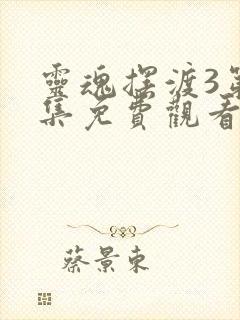 靈魂擺渡3第
集免費觀看
蔡景東